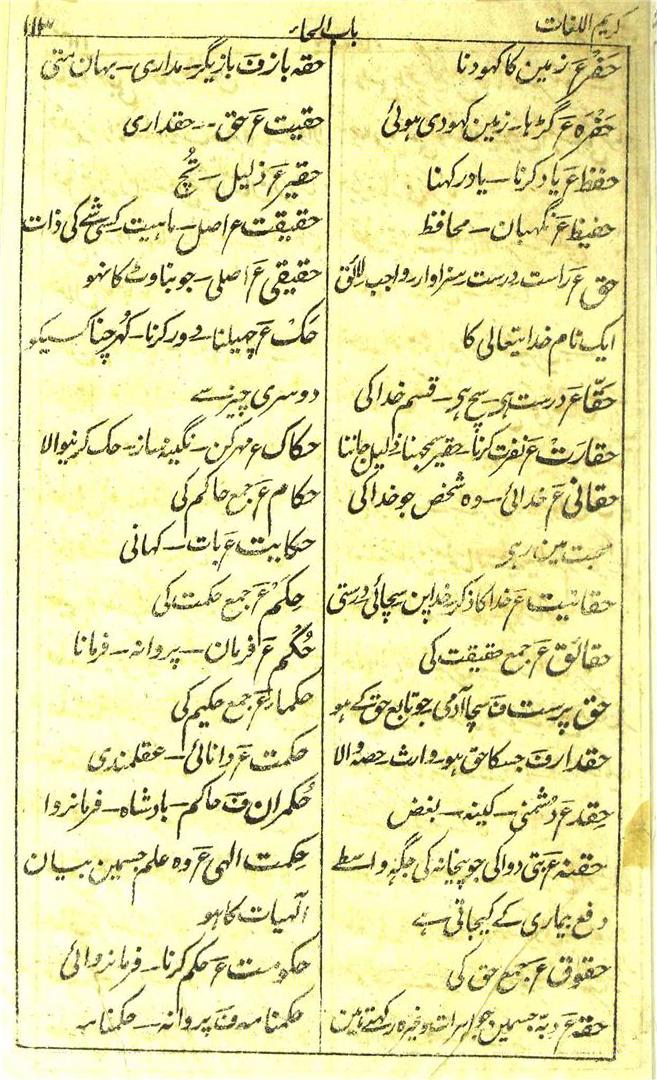 کریم اللغات
باب الحاء
۱۱۳
حفر ع زمین کا کھودنا
حفرہ ع گڑہا ۔ زمین کہودی ہوئی
حفظ ع یاد کرنا ۔ یاد رکہنا
حفیظ ع نگہبان ۔ محافظ
حق ع راست درست سزاوار واجب لائق
ایک نام خدا یتعالی کا
حقّا ع درست ہی سچ ہی ۔ قسم خدا کی
حقارت ع نفرت کرنا ۔ حقیر سمجہنا ذلیل جاننا
حقانی ع خدائی ۔ وہ شخص جو خدا کی
محبت مین رہی
حقانیت ع خدا کا ذکر خدا پن سچائی درستی
حقائق ع جمع حقیقت کی
حق پرست ف سچا آدمی جو تابع حق کے ہو
حقدار ف جسکا حق ہو ۔ وارث حصہ والا
حِقد ع دُشمنی ۔ کینہ ۔ بغض
حقنہ ع بتی دوا کی جو پیخانہ کی جگہ واسطے
دفع بیماری کے کیجاتی ہے
حقوق ع جمع حق کی
حقہ ع دبہ جسمین جواہرات وغیرہ رکہتے ہین
حقہ باز ف بازیگر ۔ مداری ۔ بہان متی
حقیت ع حق ۔۔ حقداری
حقیر ع ذلیل ۔ تُچ
حقیقت ع اصل ۔ ماہیت کسی شے کی ذات
حقیقی ع اصلی ۔ جو بناوٹ کا نہو
حَکّ ع چہیلنا دور کرنا ۔ کہرچنا کسیکو
دوسری چیز سے
حکاک ع مہرکن ۔ نگینہ ساز ۔ حک کرنیوالا
حکام ع جمع حاکم کی
حکایت ع بات ۔ کہانی
حِکَم ع جمع حکمت کی
حُکم ع فرمان ۔ پروانہ ۔ فرمانا
حکماء ع جمع حکیم کی
حکمت ع دانائی ۔ عقلمندی
حُکمران ف حاکم ۔ بادشاہ ۔ فرمانروا
حِکمت الٰہی ع وہ علم جسمین بیان
الٰہیات کا ہو
حکومت ع حکم کرنا ۔ فرمانروائی
حکمنامہ ف پروانہ ۔ حکمنامہ